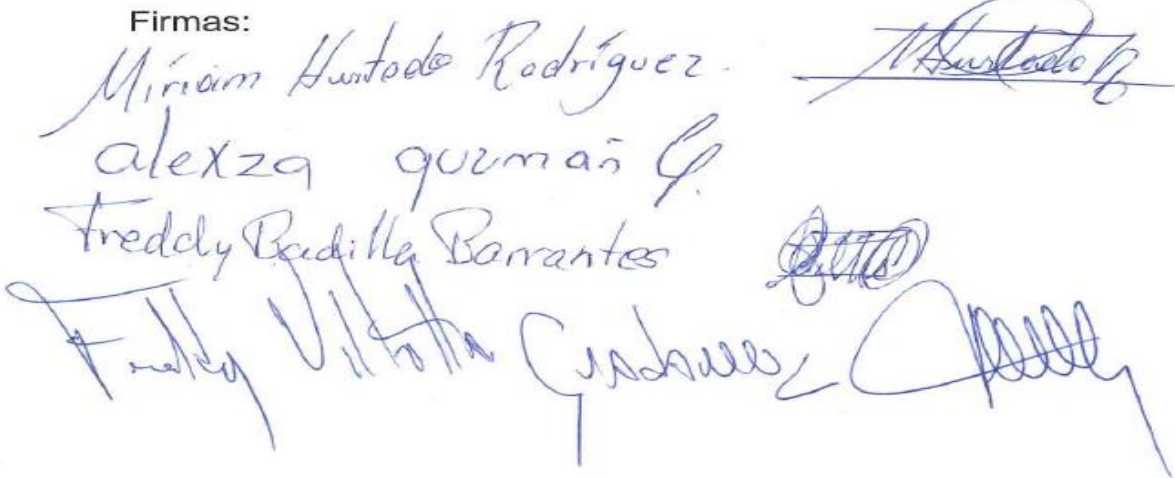 Firmas:
Míriam Hurtado Rodríguez. MHurtado R
alexza guzmán G.
Freddy Badilla Barrantes
Freddy